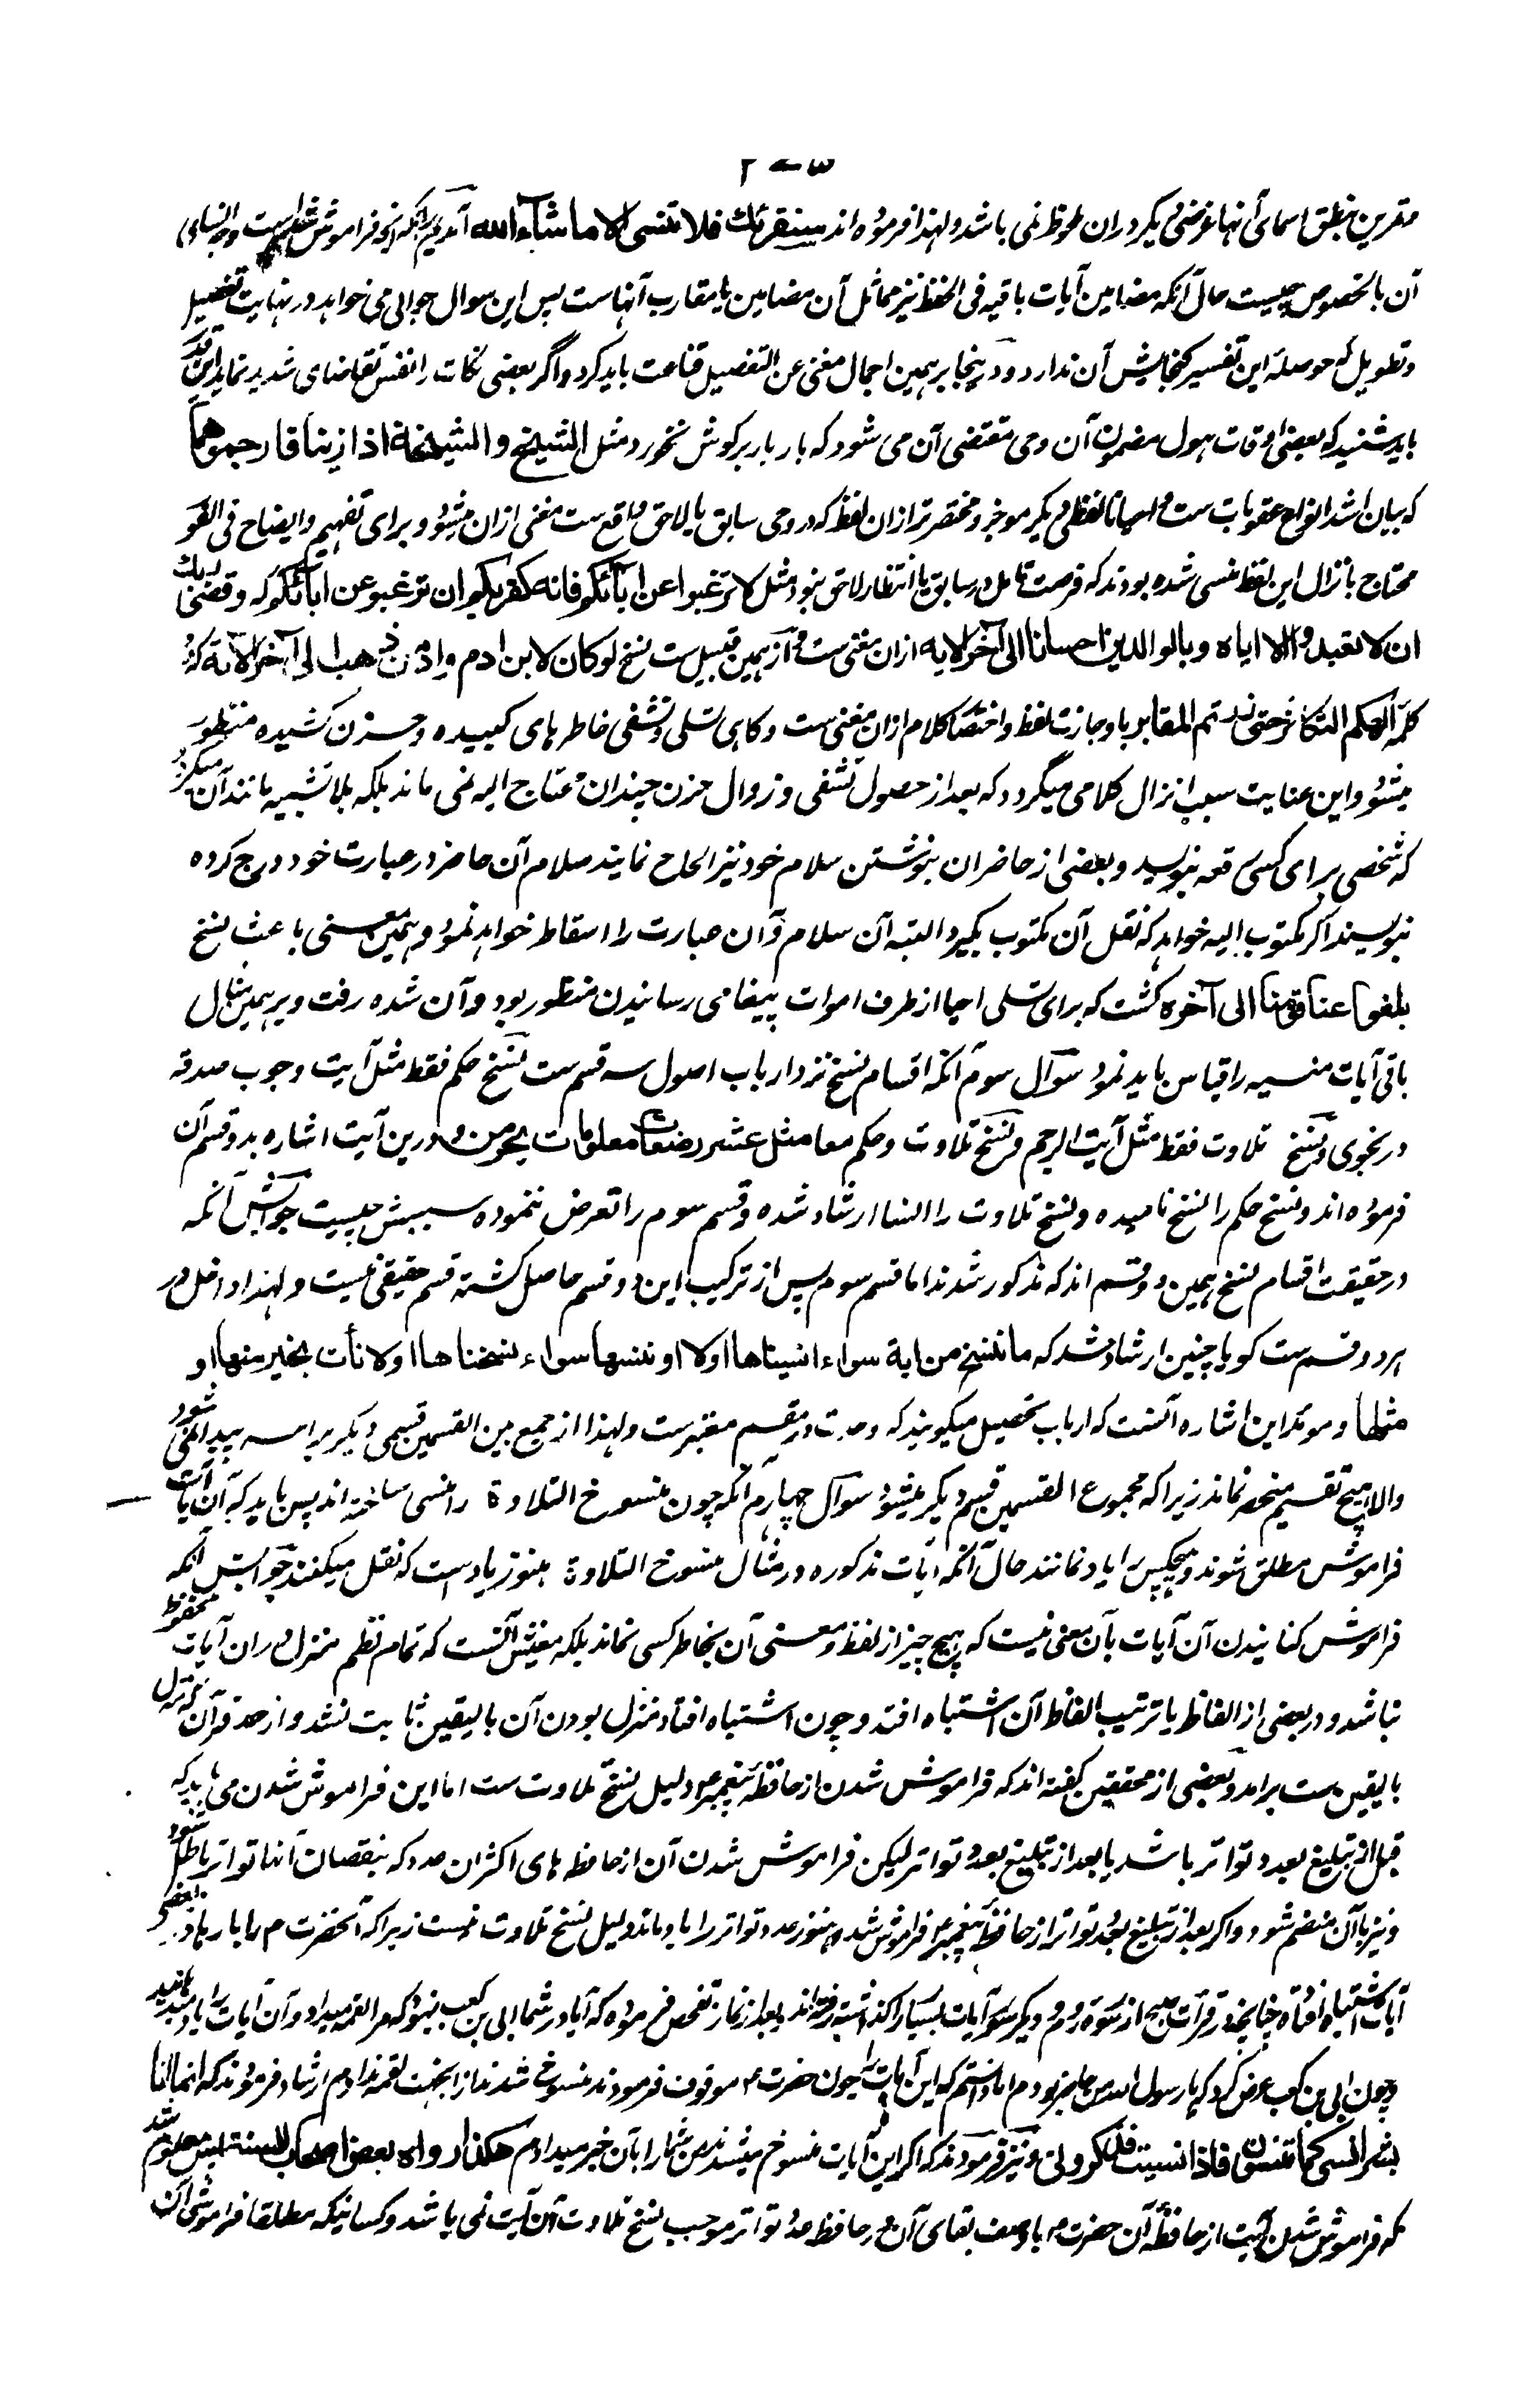 مقربین بنطق اسمای آنها غرضی دیگر دران ملحوظ نمی باشد و لهذا فرموده اند سنقرئك فلا تنسی الا ما شاء الله آمدیم برآنکه آنچه فراموش شده است وجه انسای
آن بالخصوص چیست حال آنکه مضامین آیات باقیه فی الحفظ نیز مماثل آن مضامین یا مقارب آنهاست پس این سوال جوابی می خواهد در نهایت تفصیل
و تطویل که حوصلهٔ این تفسیر گنجایش آن ندارد و درینجا برهمین اجمال مغنی عن التفصیل قناعت باید کرد و اگر بعضی نکات را نفس تقاضای شدید نماید این قدر
باید شنید که بعضی اوقات هول مضمون آن وحی مقتضی آن می شود که بار بار بر گوش نخورد مثل الشیخ و الشیخة اذا زنیا فارجموهما
که بیان اشد انواع عقوبات ست و احیانا لفظی دیگر موجز و مختصر تر ازان لفظ که در وحی سابق یا لاحق واقع ست مغنی ازان میشود و برای تفهیم و ایضاح فی الفور
محتاج بانزال این لفظ منسی شده بودند که فرصت تامل در سابق یا انتظار لاحق نبود مثل لا ترغبوا عن آبائکم فانه کفر بکم ان ترغبوا عن آبائکم که و قضی ربك
ان لا تعبدوا الا ایاه و بالوالدین احسانا الی آخر الآیه ازان مغنی ست و از همین قبیل ست نسخ لو کان لابن ادم وادٍ من ذهب الی آخر الآیة که
کلمهٔ الهکم التکاثر حتی زرتم المقابر با وجازت لفظ و اختصار کلام ازان مغنی ست و گاهی تسلی و تشفی خاطر های کبیده و حزن کشیده منظور
میشود و این عنایت سبب انزال کلامی میگردد که بعد از حصول تشفی و زوال حزن چندان محتاج الیه نمی ماند بلکه بلا تشبیه مانند آن میگردد
که شخصی برای کسی رقعه بنویسد و بعضی از حاضران بنوشتن سلام خود نیز الحاح نمایند سلام آن حاضر در عبارت خود درج کرده
بنویسند اگر مکتوب الیه خواهد که نقل آن مکتوب بگیرد البته آن سلام و آن عبارت را اسقاط خواهد نمود و همین معنی باعث نسخ
بلغوا عنا قومنا الی آخره گشت که برای تسلی احیا از طرف اموات پیغامی رسانیدن منظور بود و آن شده رفت و برهمین مثال
باقی آیات منسیه را قیاس باید نمود سوال سوم آنکه اقسام نسخ نزد ارباب اصول سه قسم ست نسخ حکم فقط مثل آیت وجوب صدقه
در نجوی و نسخ تلاوت فقط مثل آیت الرجم و نسخ تلاوت و حکم معا مثل عشر رضعات معلومات یحرمن و درین آیت اشاره بدو قسم آن
فرموده اند و نسخ حکم را نسخ نامیده و نسخ تلاوت را انسا ارشاد شده و قسم سوم را تعرض ننموده سببش چیست جوابش آنکه
در حقیقت اقسام نسخ همین دو قسم اند که مذکور شدند اما قسم سوم پس از ترکیب این دو قسم حاصل گشته قسم حقیقی نیست و لهذا داخل در
هر دو قسم ست گویا چنین ارشاد شد که ما ننسخ من ایة سواء انسیناها اولا او ننسها سواء نسخناها اولا نأت بخیر منها او
مثلها و موید این اشاره آنست که ارباب تحصیل میگویند که وحدت در مقسم معتبرست و لهذا از جمع بین القسمین قسمی دیگر براسه پیدا نمی شود
والا هیچ تقسیم منحصر نماند زیرا که مجموع القسمین قسم دیگر میشود سوال چهارم آنکه چون منسوخ التلاوة را منسی ساخته اند پس باید که آن آیات
فراموش مطلق شوند و هیچکس را یاد نمانند حال آنکه آیات مذکوره در مثال منسوخ التلاوة هنوز یاد است که نقل میکنند جوابش آنکه
فراموش کنانیدن آن آیات بآن معنی نیست که هیچ چیز از لفظ و معنی آن بخاطر کسی نماند بلکه معنیش آنست که تمام نظم منزل دران آیات محفوظ
نباشد و در بعضی از الفاظ یا ترتیب الفاظ آن اشتباه افتد و چون اشتباه افتاد منزل بودن آن بالیقین ثابت نشد و از حد قرآن که منزل
بالیقین ست برامد و بعضی از محققین گفته اند که فراموش شدن از حافظهٔ پیغمبر دلیل نسخ تلاوت ست اما این فراموش شدن می باید که
قبل از تبلیغ بعدد تواتر باشد یا بعد از تبلیغ بعدد تواتر لیکن فراموش شدن آن از حافظه های اکثران عدد که بنقصان آنها تواتر باطل شود
و نیز باآن منضم شود و اگر بعد از تبلیغ بعدد تواتر از حافظهٔ پیغمبر فراموش شد و هنوز عدد تواتر را یاد ماند دلیل نسخ تلاوت نیست زیرا که آنحضرت م را بارها در بعضی
آیات اشتباه افتاده چنانچه در قرأت صبح از سوره روم و دیگر سور آیات بسیار را گذاشته رفته اند و بعد از نماز تفحص فرموده که آیا در شما ابی بن کعب نبود که مرا لقمه میداد و آن آیات را یاد میدهانید
و چون ابی بن کعب عرض کرد که یا رسول الله من حاضر بودم اما دانستم که این آیات را چون حضرت م موقوف فرمودند منسوخ شدند ازینجهت لقمه ندادم ارشاد فرمودند که انما انا
بشر انسی کما تنسون فاذا نسیت فذکرونی و نیز فرمودند که اگر این آیات منسوخ میشدند من شما را بآن خبر میدادم هکذا رواه بعض اصحاب السنة پس معلوم شد
که فراموش شدن آیت از حافظهٔ آن حضرت م باوصف بقای آن در حافظهٔ عدد تواتر موجب نسخ تلاوت آن آیت نمی باشد و کسانیکه مطلقا فراموشی آن